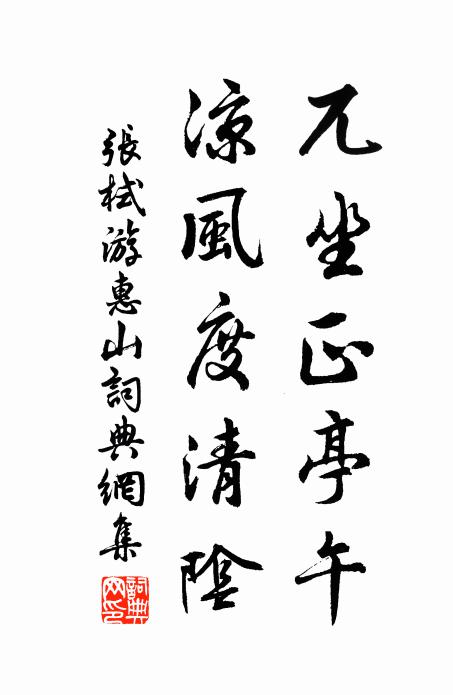 兀坐正亭午
凉風度清陰
張栻游惠山詞典網集
詞典网印